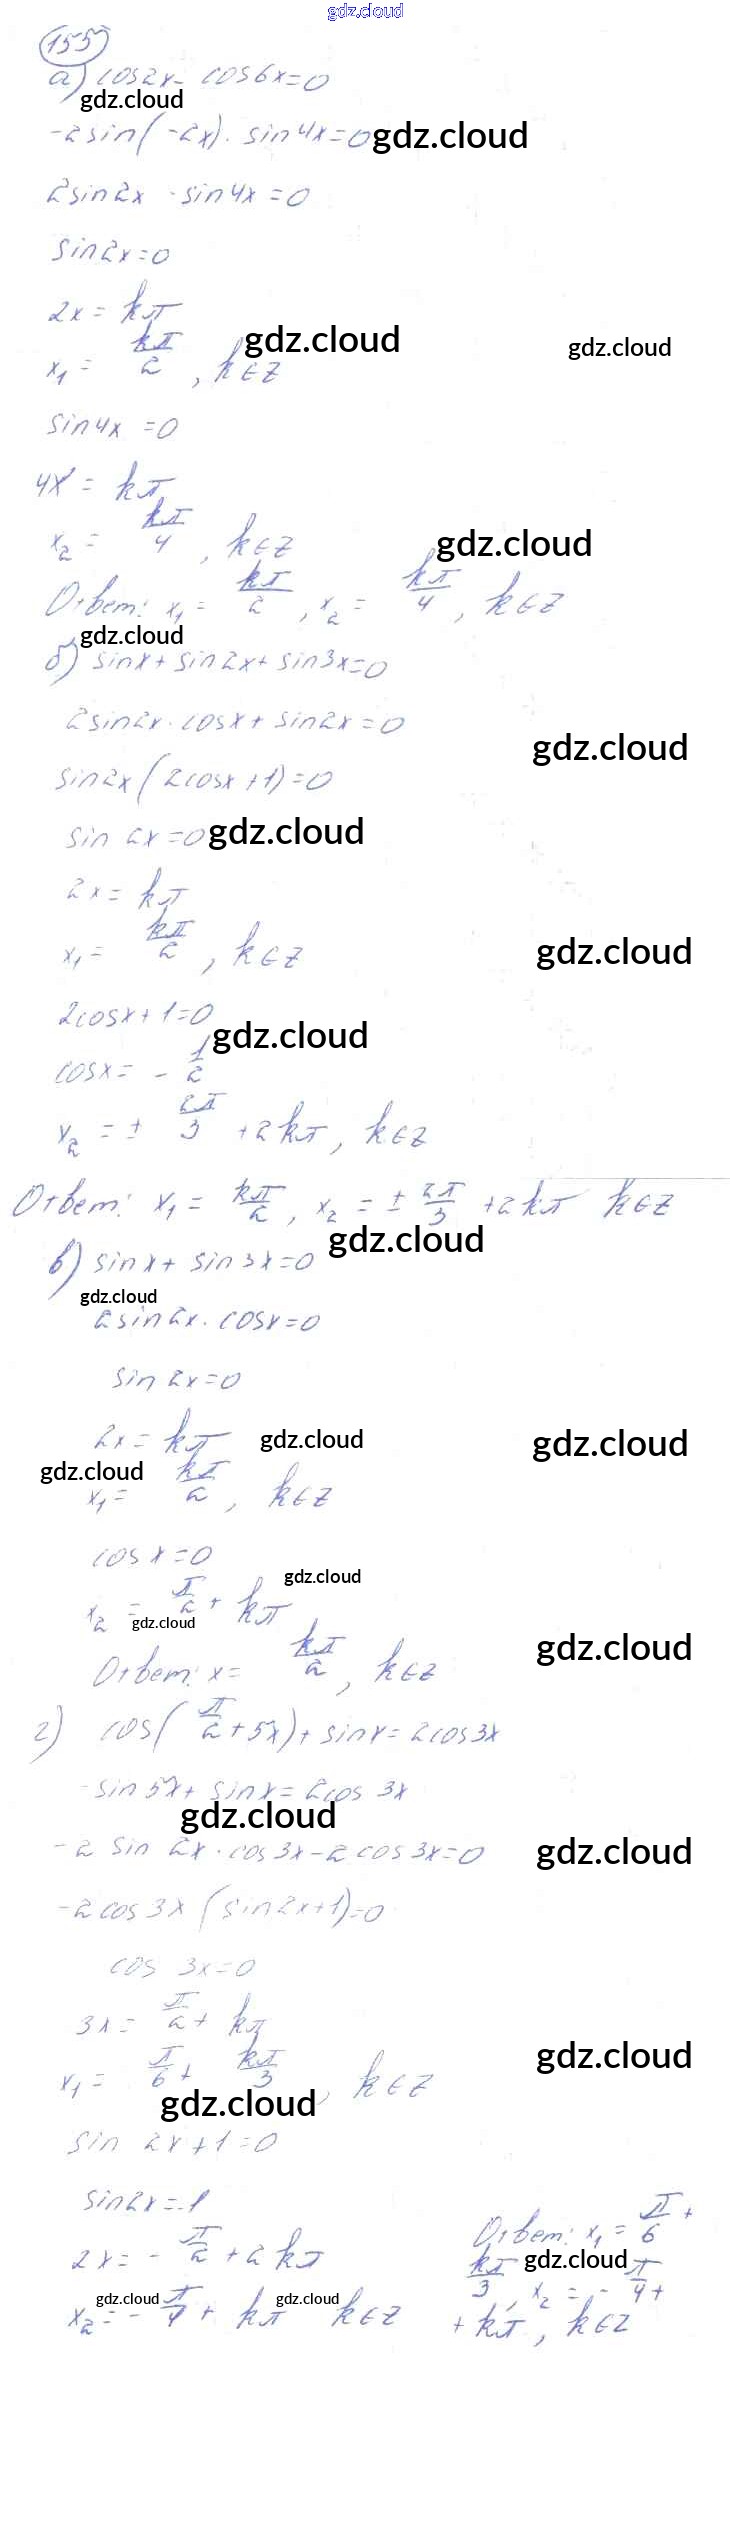 gdz.cloud
155
а) cos2x - cos6x=0
gdz.cloud
-2sin(-2x)·sin4x=0 gdz.cloud
2sin2x·sin4x=0
sin2x=0
2x=kπ
x₁ = kπ/2, k∈Z gdz.cloud gdz.cloud
sin4x=0
4x=kπ
x₂ = kπ/4, k∈Z gdz.cloud
Ответ: x₁ = kπ/2, x₂ = kπ/4, k∈Z
gdz.cloud
б) sinx+sin2x+sin3x=0
2sin2x·cosx+sin2x=0
gdz.cloud
sin2x(2cosx+1)=0
sin2x=0 gdz.cloud
2x=kπ
x₁ = kπ/2, k∈Z gdz.cloud
2cosx+1=0
gdz.cloud
cosx = -1/2
x₂ = ± 2π/3 + 2kπ, k∈Z
Ответ: x₁ = kπ/2, x₂ = ± 2π/3 + 2kπ k∈Z
gdz.cloud
в) sinx+sin3x=0
gdz.cloud
2sin2x·cosx=0
sin2x=0
2x=kπ gdz.cloud gdz.cloud
gdz.cloud
x₁ = kπ/2, k∈Z
cosx=0
gdz.cloud
x₂ = π/2 + kπ
gdz.cloud
Ответ: x = kπ/2, k∈Z gdz.cloud
г) cos(π/2+5x)+sinx=2cos3x
-sin5x+sinx=2cos3x
gdz.cloud
-2sin2x·cos3x-2cos3x=0 gdz.cloud
-2cos3x(sin2x+1)=0
cos3x=0
3x = π/2 + kπ
x₁ = π/6 + kπ/3, k∈Z gdz.cloud
gdz.cloud
sin2x+1=0
sin2x=-1
2x = -π/2 + 2kπ
x₂ = -π/4 + kπ k∈Z
gdz.cloud gdz.cloud
Ответ: x₁ = π/6 +
kπ/3, x₂ = -π/4 +
gdz.cloud
+kπ, k∈Z